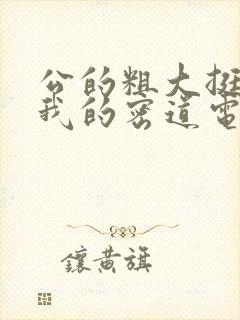 公的粗大挺
我的密道電
鑲黃旗